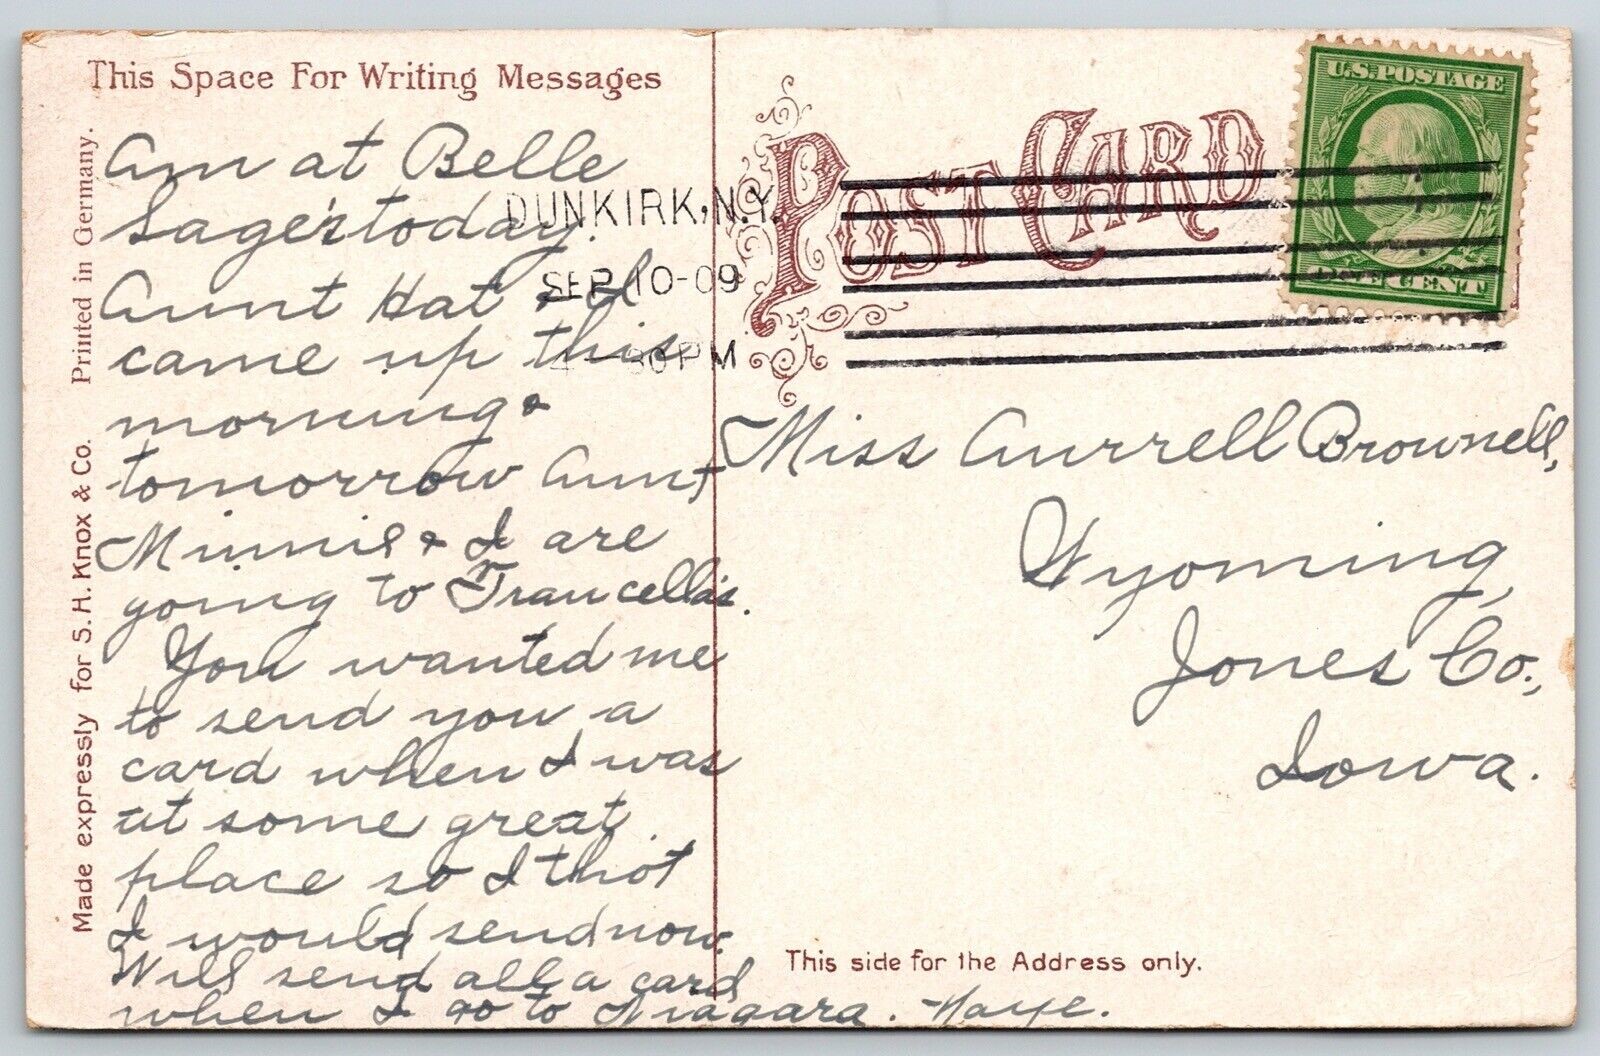 This Space For Writing Messages
Am at Belle
Sage's today.
Aunt Hat & I
came up this
morning &
tomorrow Aunt
Minnie & I are
going to Francella's.
You wanted me
to send you a
card when I was
at some great
place so I thot
I would send now.
Will send all a card
when I go to Niagara.
Made expressly for S.H. Knox & Co. Printed in Germany.
DUNKIRK, N.Y.
SEP 10-09
30 PM
POST CARD
U.S. POSTAGE
ONE CENT
Miss Aurrell Brownell,
Wyoming,
Jones Co.,
Iowa.
This side for the Address only.